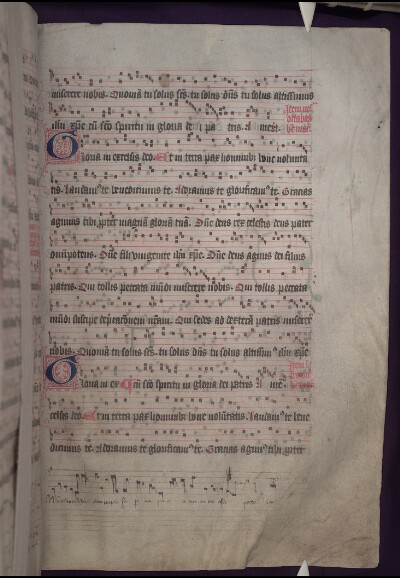 miserere nobis. Quoniā tu solus scs. tu solus dns tu solus altissimus
ihu xpe cū sco spiritu in gloria dei pa tris. A men.
Gloria in excelsis deo. Et in terra pax hominibz bone volunta
tis. Laudam' te benedicimus te. Adoramus te glorificam' te. Gracias
agimus tibi ppter magnā gloriā tuā. Dne deus rex celestis deus pater
omnipotens. Dne fili unigenite ihu xpe. Dne deus agnus dei filius
patris. Qui tollis peccata mūdi miserere nobis. Qui tollis peccata
mūdi suscipe deprecationem nram. Qui sedes ad dexterā patris miserere
nobis. Quoniā tu solus scs. tu solus dns tu solus altissim' ihu xpe
Gloria in ex Cū sco spiritu in gloria dei patris A me.
celsis deo. Et in terra pax hominibz bone volūtatis. Laudam' te bene
dicimus te. Adoramus te glorificam' te. Gracias agim' tibi ppter